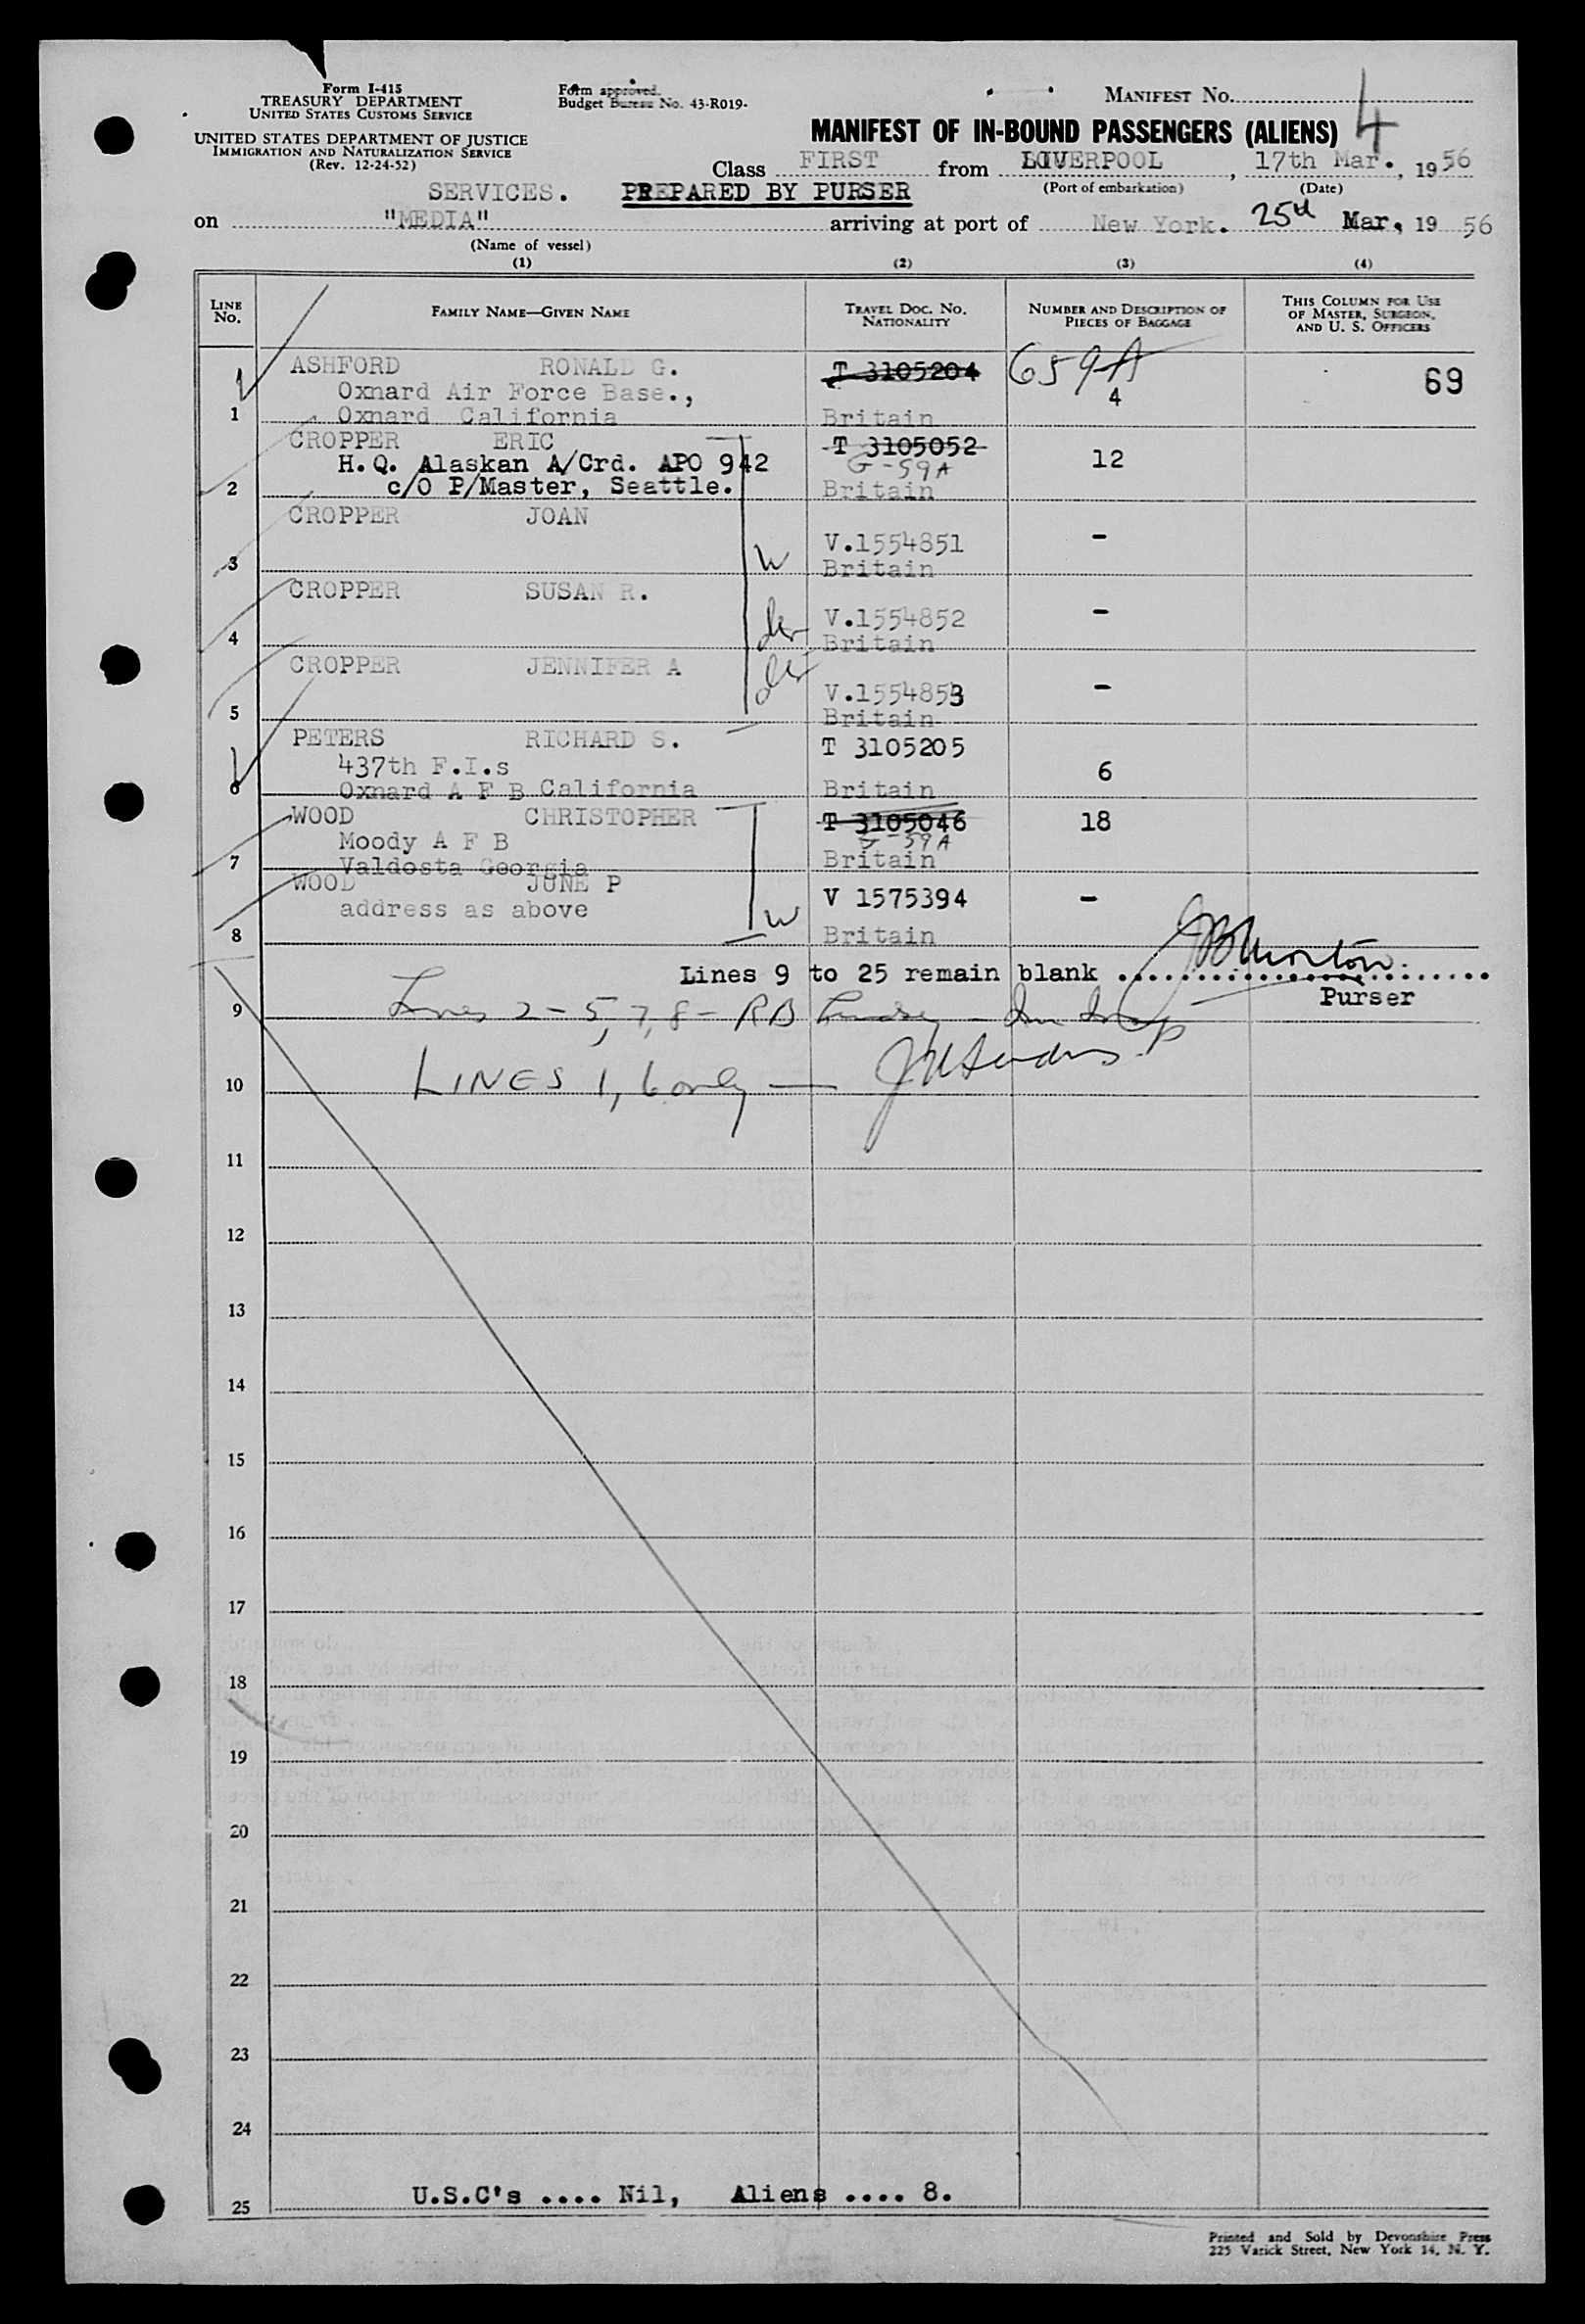 Form I-415
TREASURY DEPARTMENT
UNITED STATES CUSTOMS SERVICE
UNITED STATES DEPARTMENT OF JUSTICE
IMMIGRATION AND NATURALIZATION SERVICE
(Rev. 12-24-52)
Form approved.
Budget Bureau No. 43-R019-
MANIFEST No.
4
MANIFEST OF IN-BOUND PASSENGERS (ALIENS)
Class FIRST from LIVERPOOL, 17th Mar., 1956
(Port of embarkation) (Date)
SERVICES. PREPARED BY PURSER
on "MEDIA" arriving at port of New York. 25th Mar, 19 56
(Name of vessel)
(1) (2) (3) (4)
LINE No. FAMILY NAME—GIVEN NAME TRAVEL DOC. No. NATIONALITY NUMBER AND DESCRIPTION OF PIECES OF BAGGAGE THIS COLUMN FOR USE OF MASTER, SURGEON, AND U. S. OFFICERS
ASHFORD RONALD G. T 3105204 G59A 69
Oxnard Air Force Base., 4
1 Oxnard California Britain
CROPPER ERIC T 3105052
H.Q. Alaskan A/Crd. APO 942 G-59A 12
2 c/O P/Master, Seattle. Britain
CROPPER JOAN
V.1554851 -
3 W Britain
CROPPER SUSAN R.
V.1554852 -
4 Britain
CROPPER JENNIFER A
V.1554853 -
5 Britain
PETERS RICHARD S. T 3105205
437th F.I.s 6
6 Oxnard A F B California Britain
WOOD CHRISTOPHER T 3105046 18
Moody A F B G-59A
7 Valdosta Georgia Britain
WOOD JUNE P V 1575394 -
address as above W
8 Britain
Lines 9 to 25 remain blank
Purser
9 Lines 2-5, 7, 8 - RB
10 LINES 1, 6 only —
11
12
13
14
15
16
17
18
19
20
21
22
23
24
25 U.S.C's .... Nil, Aliens .... 8.
Printed and Sold by Devonshire Press
225 Varick Street, New York 14, N. Y.